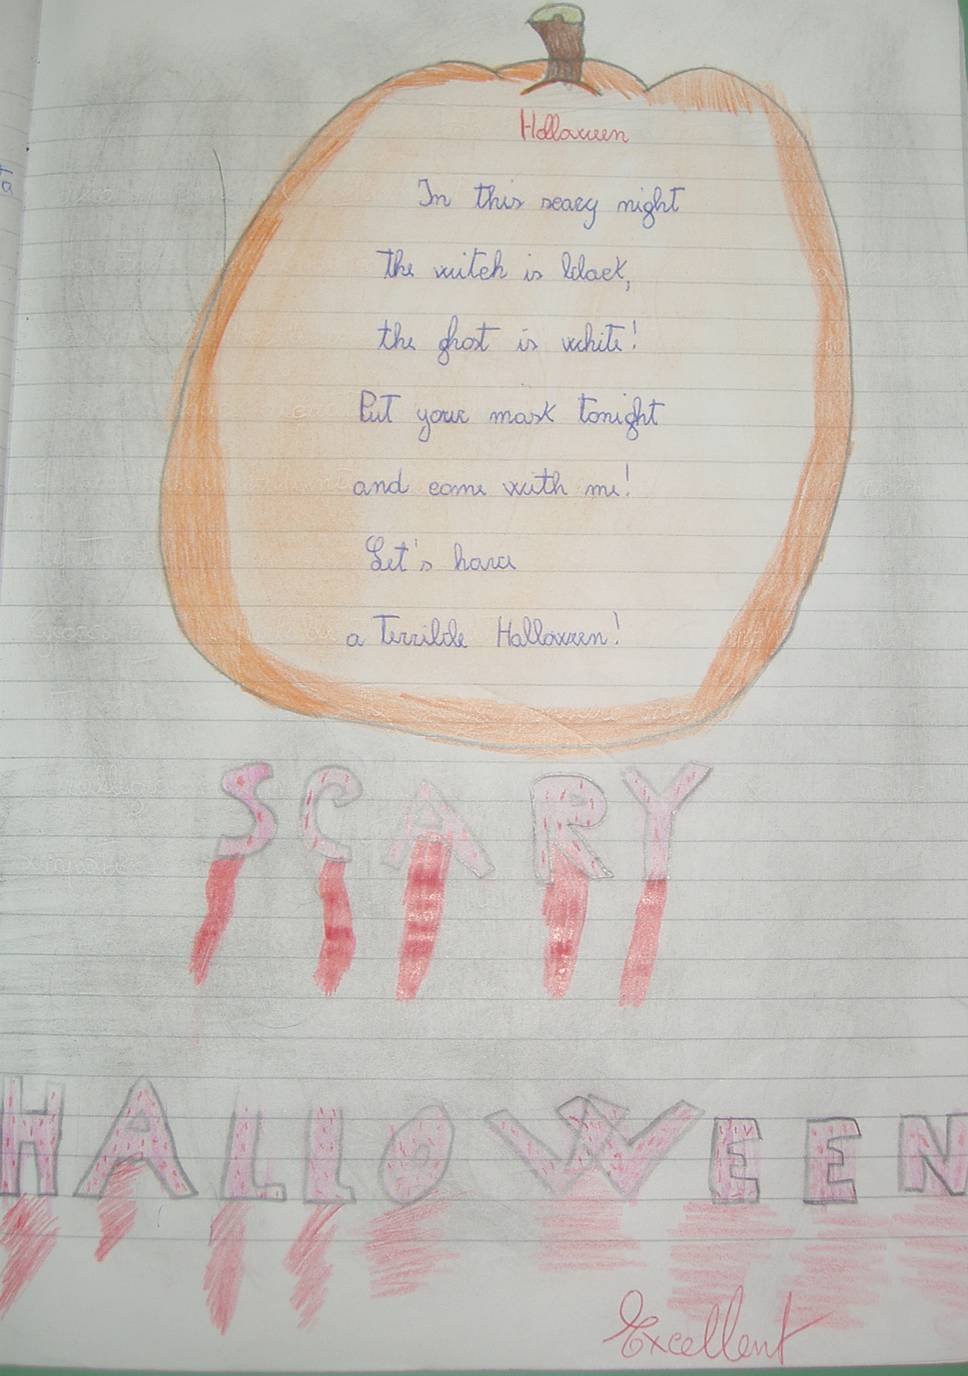 Halloween
In this scary night
the witch is black,
the ghost is white!
Put your mask tonight
and come with me!
Let's have
a terrible Halloween!
SCARY
HALLOWEEN
Excellent